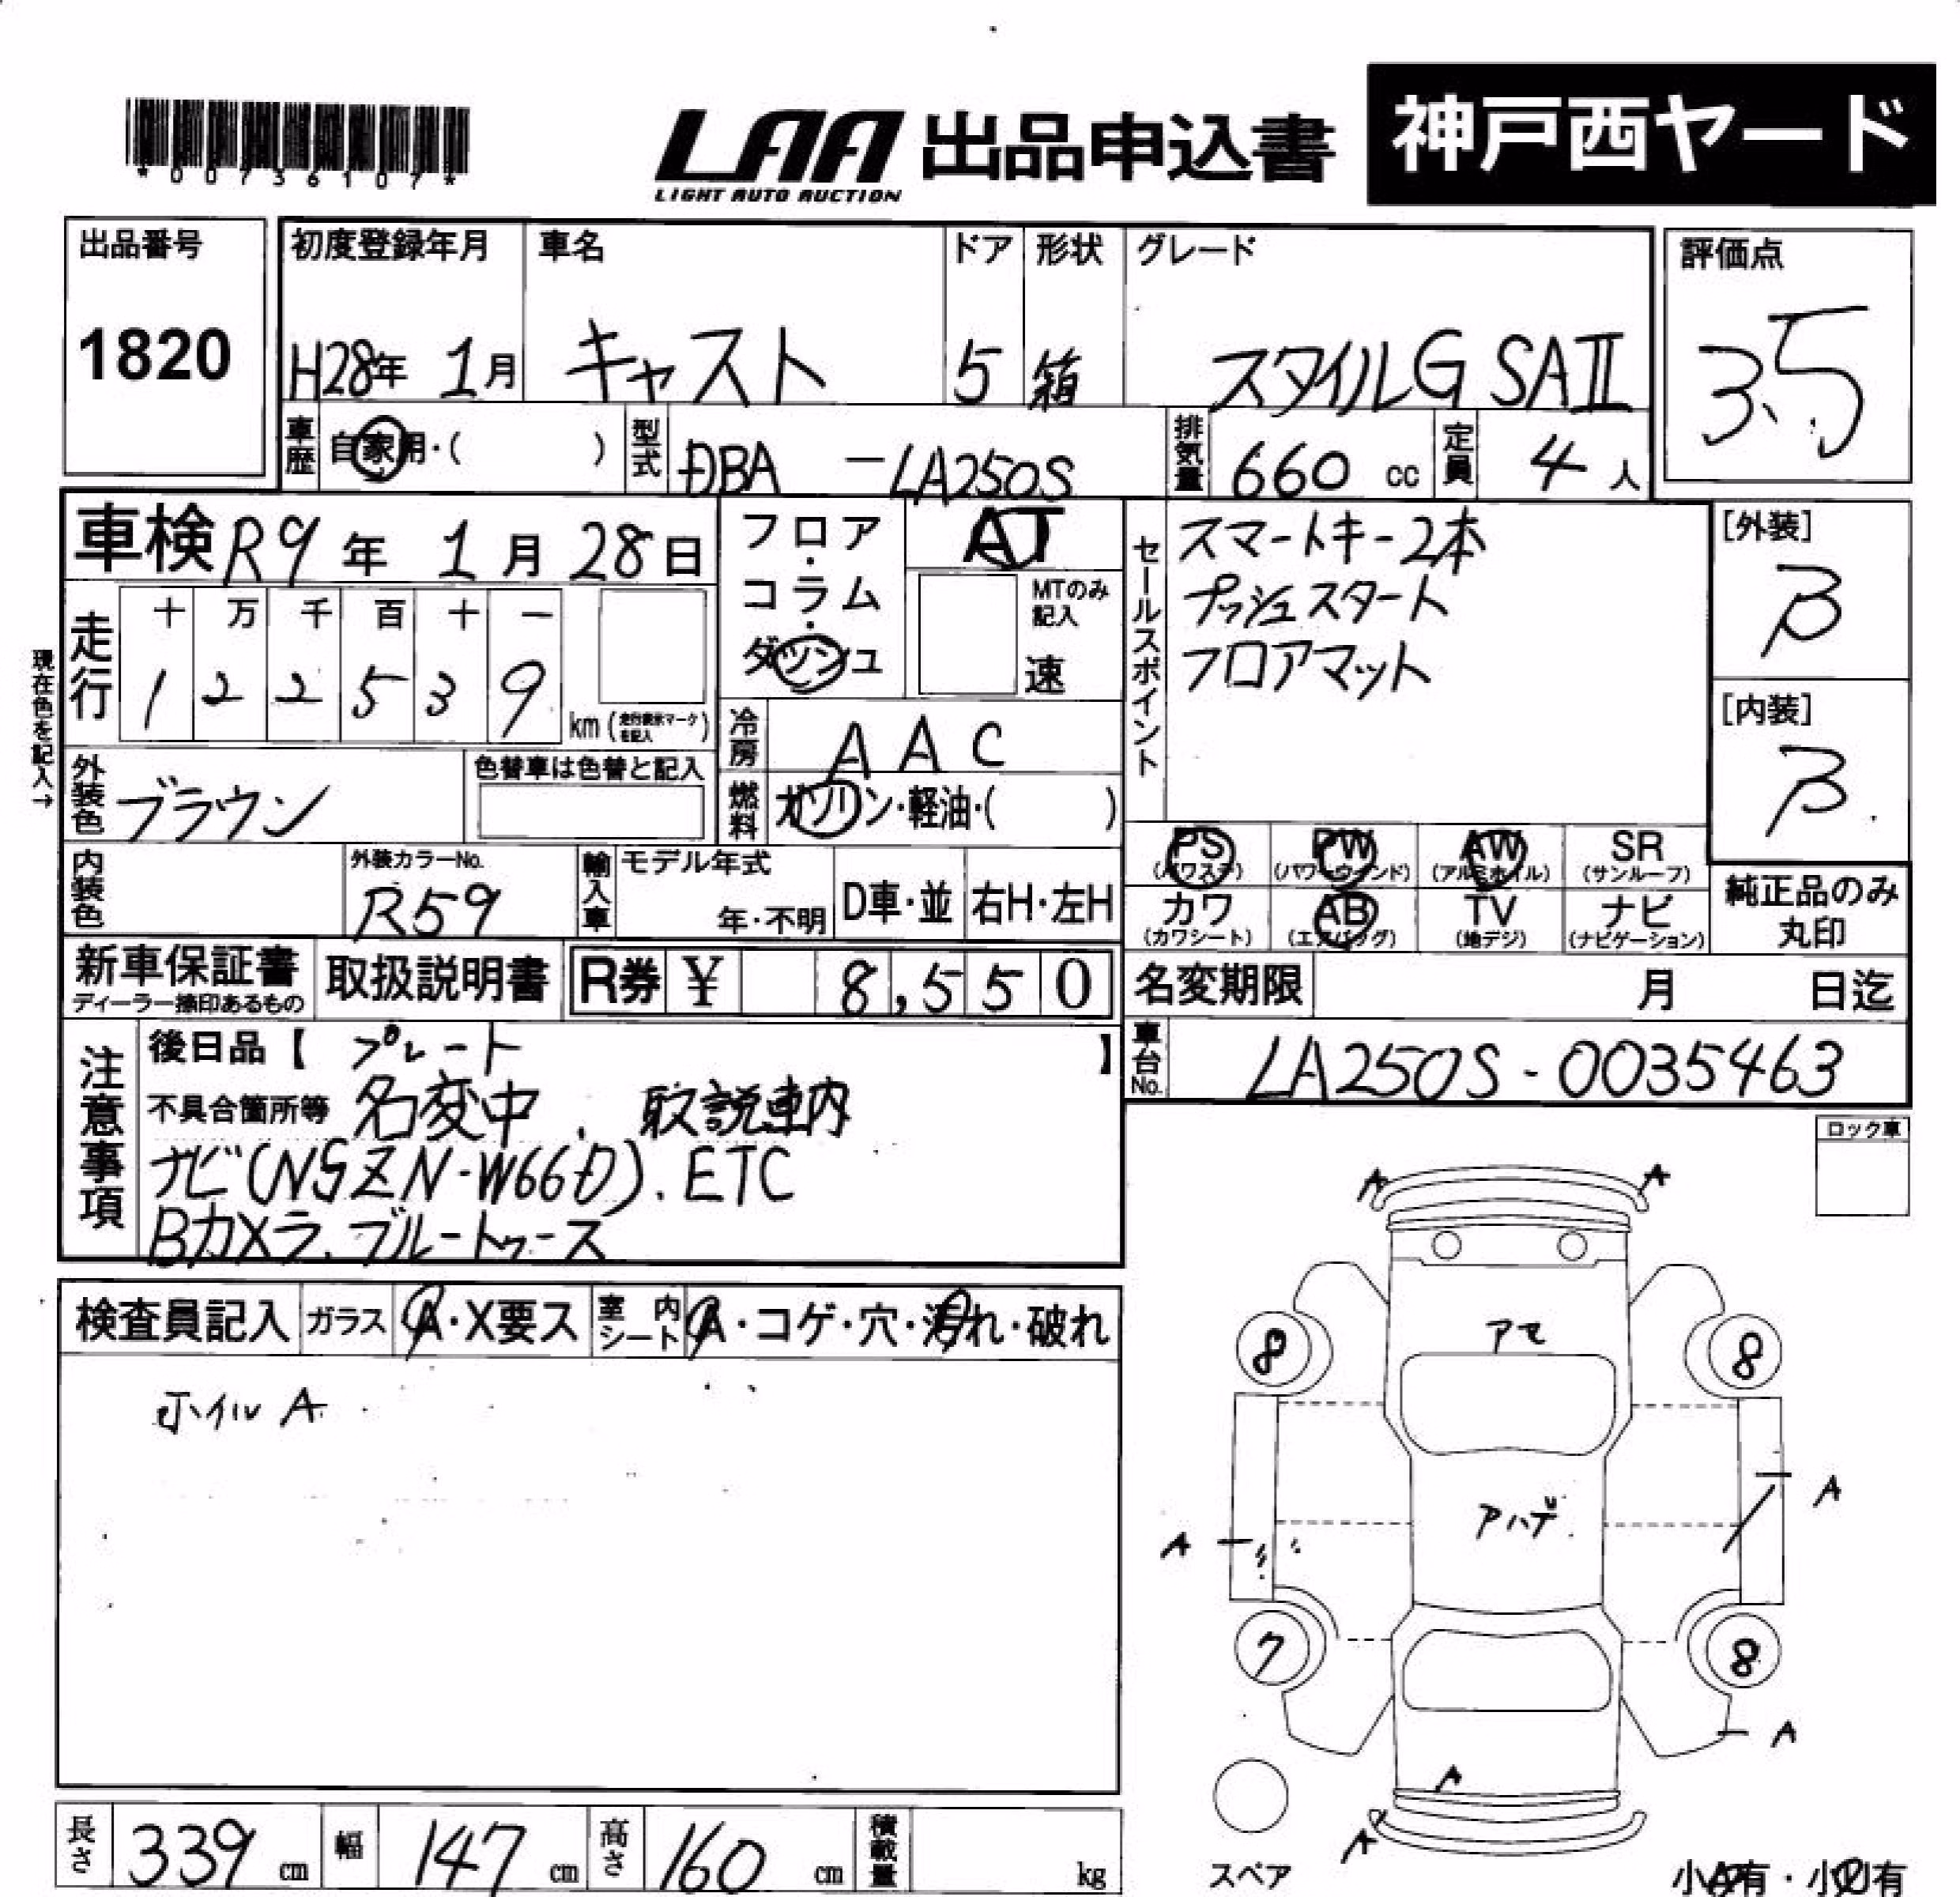 *00736107*
LAA 出品申込書 神戸西ヤード
LIGHT AUTO AUCTION
出品番号 初度登録年月 車名 ドア 形状 グレード 評価点
1820 H28年 1月 キャスト 5 箱 スタイルG SAII 3.5
車歴 自家用・( ) 型式 DBA -LA250S 排気量 660 cc 定員 4 人
車検 R9年 1月 28日
フロア・コラム・ダッシュ AT
MTのみ記入 速
セールスポイント
スマートキー2本
プッシュスタート
フロアマット
[外装] β
[内装] β
現在色を記入→
走行 十 万 千 百 十 一
1 2 2 5 3 9 km (走行表示マークを記入)
冷房 AAC
外装色 ブラウン 色替車は色替と記入
燃料 ガソリン・軽油・( )
PS (パワステ) PW (パワーウインド) AW (アルミホイル) SR (サンルーフ)
カワ (カワシート) AB (エアバッグ) TV (地デジ) ナビ (ナビゲーション)
純正品のみ丸印
内装色 外装カラーNo. R59 輸入車 モデル年式 年・不明 D車・並 右H・左H
新車保証書 ディーラー捺印あるもの 取扱説明書 R券 ¥ 8,550
名変期限 月 日迄
車台No. LA250S-0035463
注意事項
後日品【 プレート 】
不具合箇所等 名変中. 取説車内
ナビ(NSZN-W66D). ETC
Bカメラ. ブルートゥース
ロック車
検査員記入 ガラス A・X要ス 室内シート A・コゲ・穴・汚れ・破れ
ホイル A
A A
アセ
8 8
アハゲ
A A
7 8
A
A
A
スペア
小A有・小凹有
長さ 339 cm 幅 147 cm 高さ 160 cm 積載量 kg